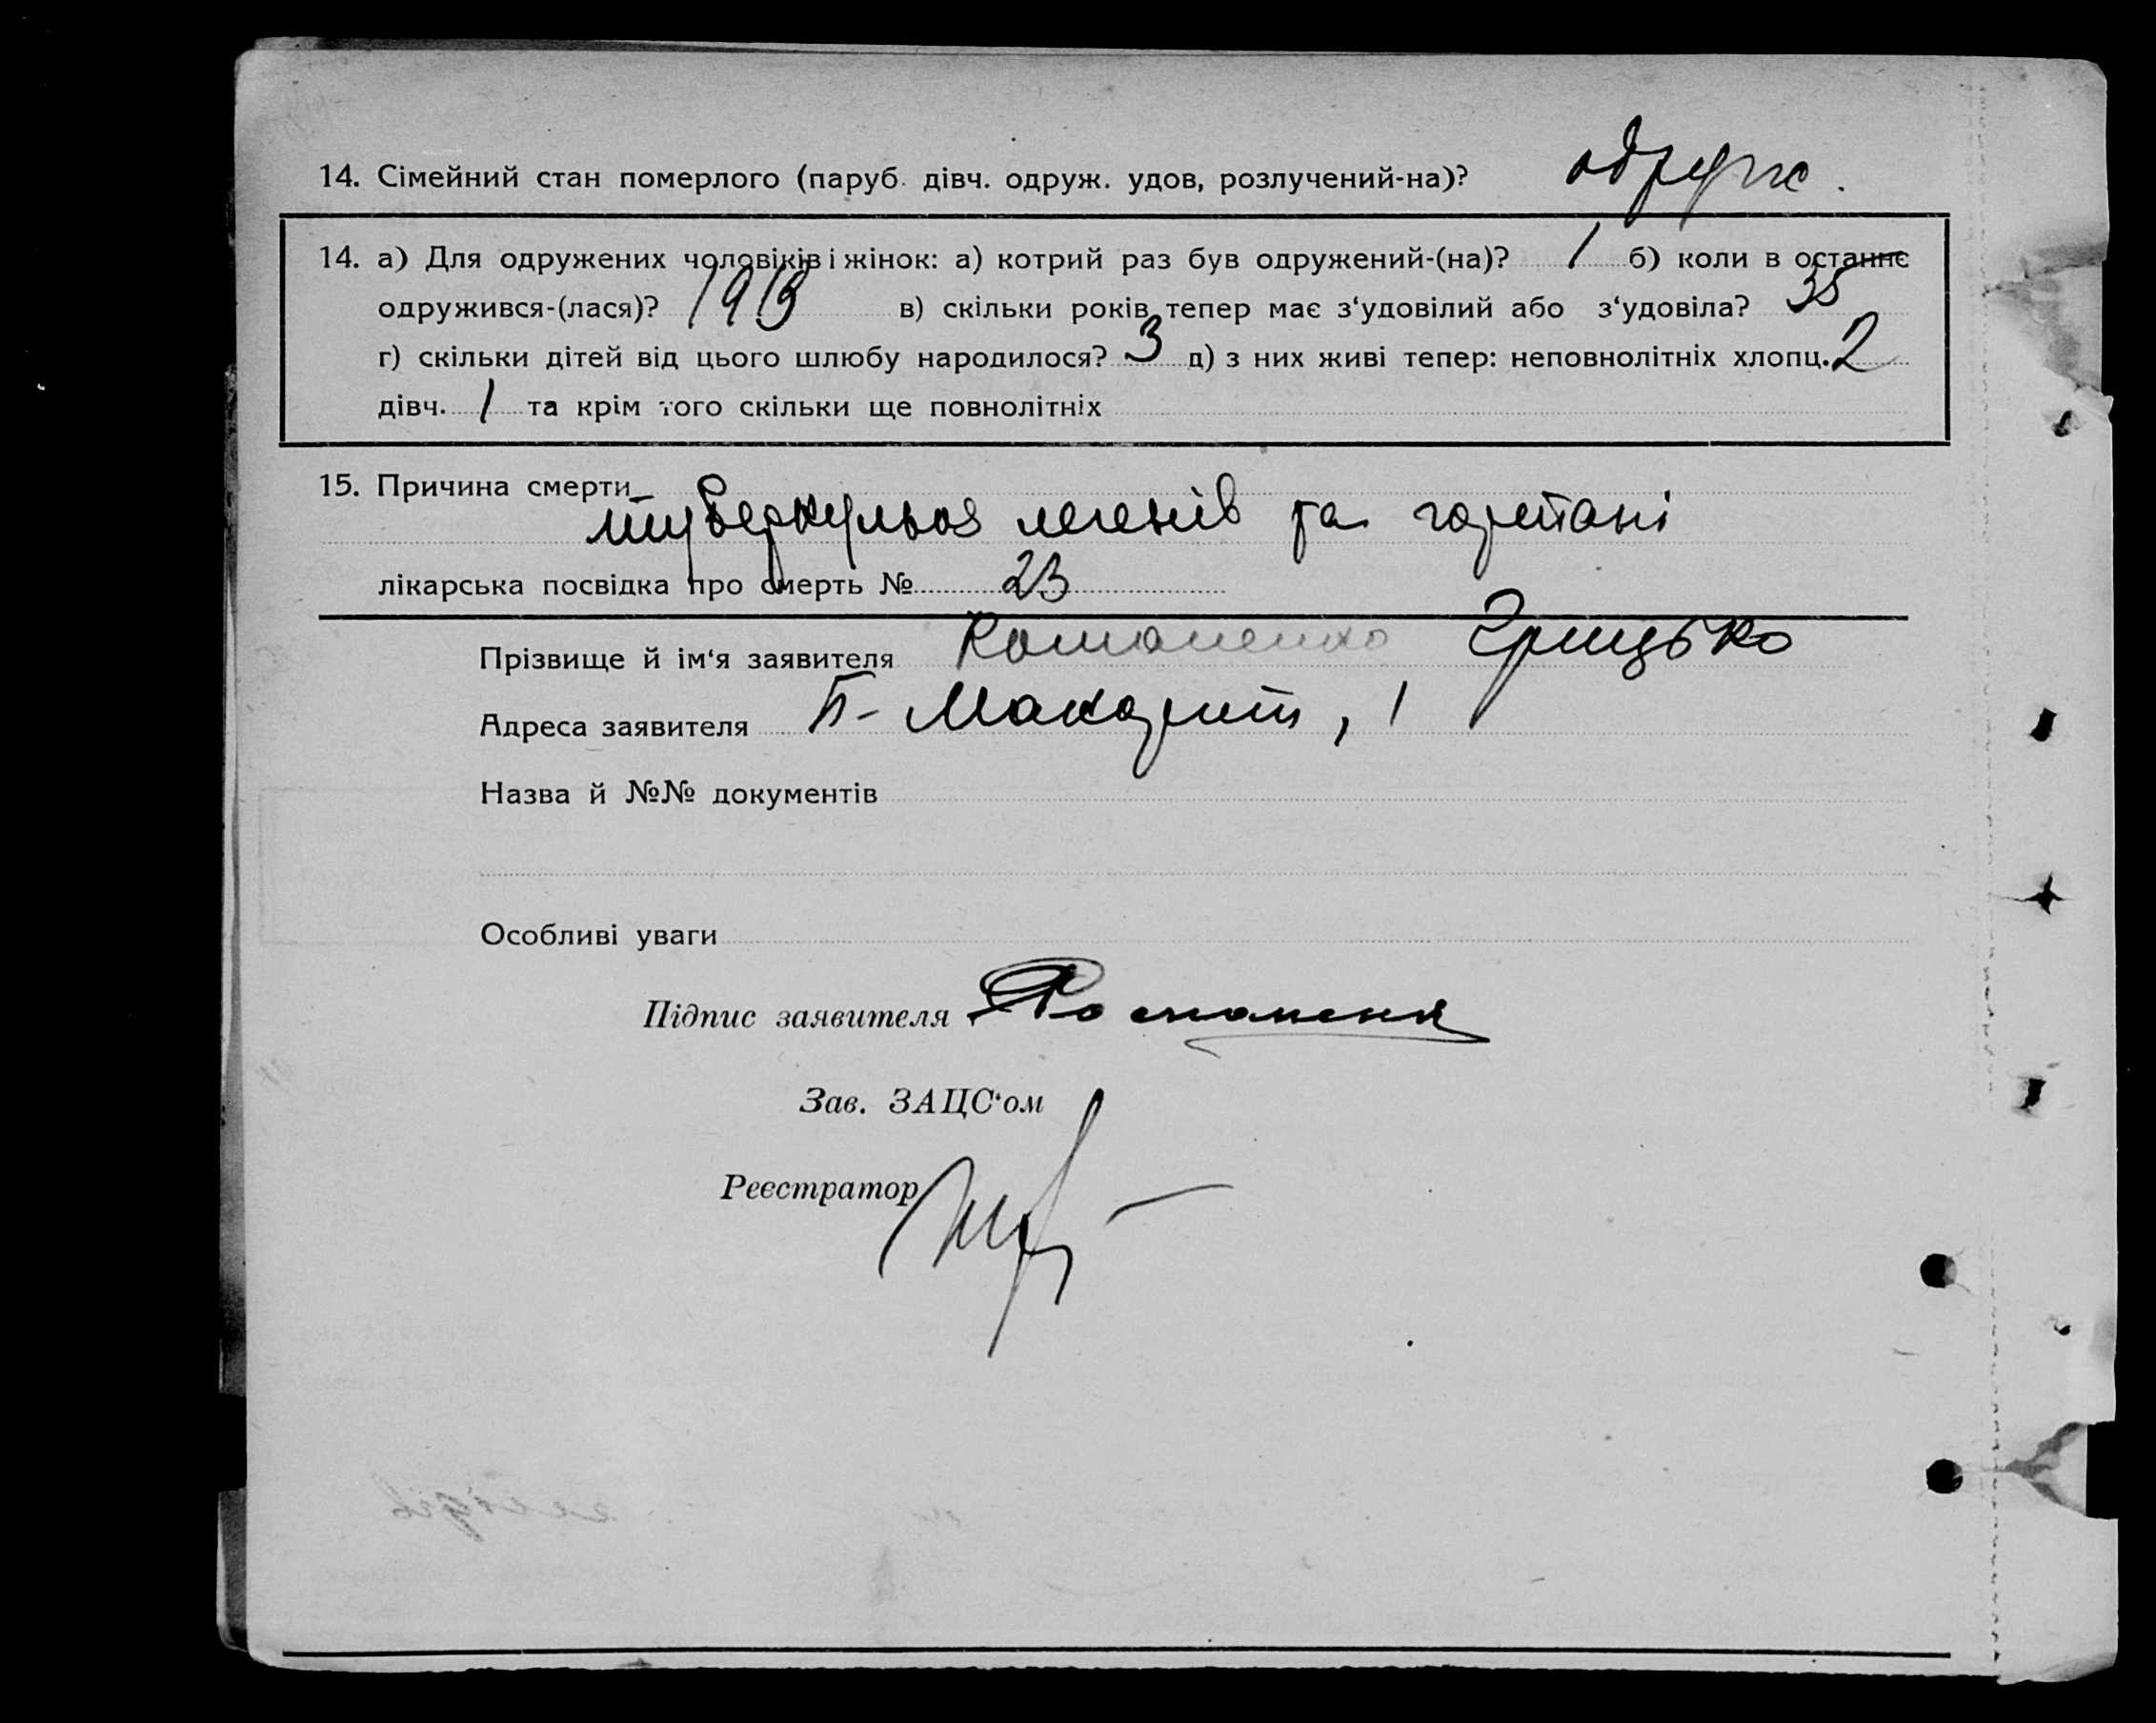 14. Сімейний стан померлого (паруб. дівч. одруж. удов, розлучений-на)? одруж.
14. а) Для одружених чоловіків і жінок: а) котрий раз був одружений-(на)? 1 б) коли в останнє
одружився-(лася)? 1913 в) скільки років тепер має з‘удовілий або з‘удовіла? 35
г) скільки дітей від цього шлюбу народилося? 3 д) з них живі тепер: неповнолітніх хлопц. 2
дівч. 1 та крім того скільки ще повнолітніх
15. Причина смерти
туберкульоз легенів та гортані
лікарська посвідка про смерть № 23
Прізвище й ім‘я заявителя Романенко Грицько
Адреса заявителя
Назва й №№ документів
Особливі уваги
Підпис заявителя
Зав. ЗАЦС‘ом
Реєстратор